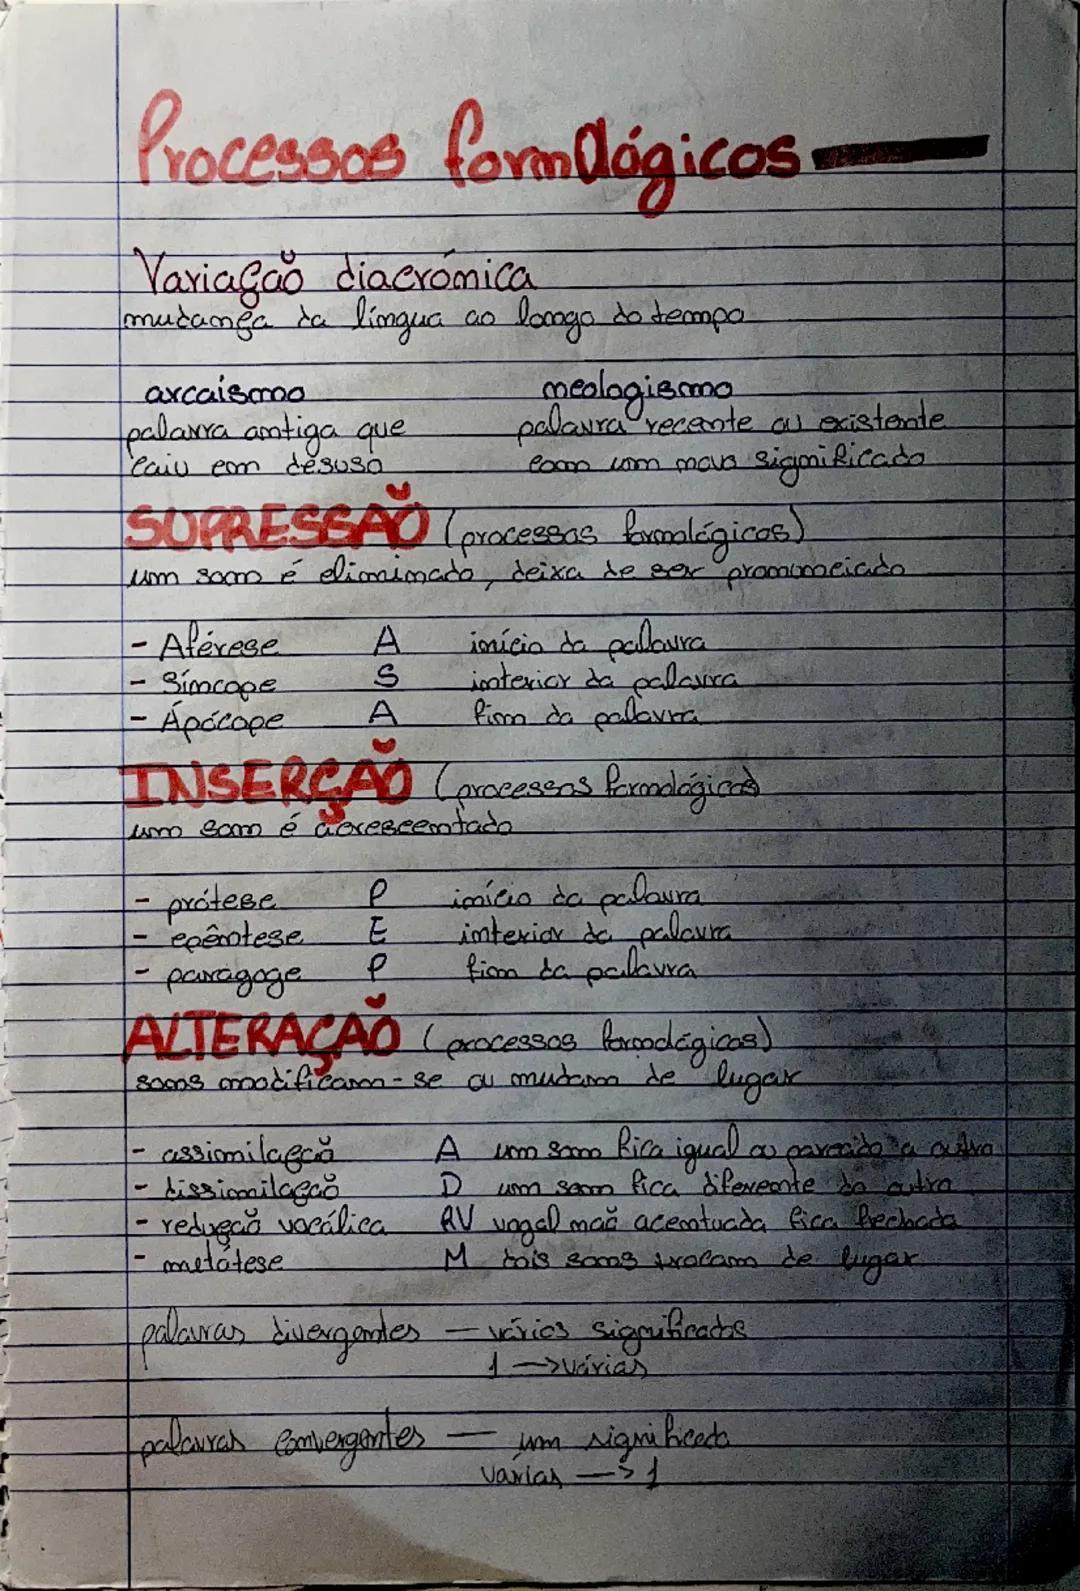 Processos fonológicos
Variação diacrónica
mudança da língua ao longo do tempo
arcaismo neologismo
palavra antiga que palavra recente ou existente
caiu em desuso com um novo significado
SUPRESSÃO (processos fonológicos)
um som é eliminado, deixa de ser pronunciado
- Aférese A início da palavra
- Síncope S interior da palavra
- Ápócope A fim da palavra
INSERÇÃO (processos fonológicos)
um som é acrescentado
- prótese P início da palavra
- epêntese E interior da palavra
- paragoge P fim da palavra
ALTERAÇÃO (processos fonológicos)
sons modificam-se ou mudam de lugar
- assimilação A um som fica igual ou parecido a outro
- dissimilação D um som fica diferente do outro
- redução vocálica RV vogal não acentuada fica fechada
- metátese M dois sons trocam de lugar
palavras divergentes — vários significados
1 → várias
palavras convergentes — um significado
várias → 1